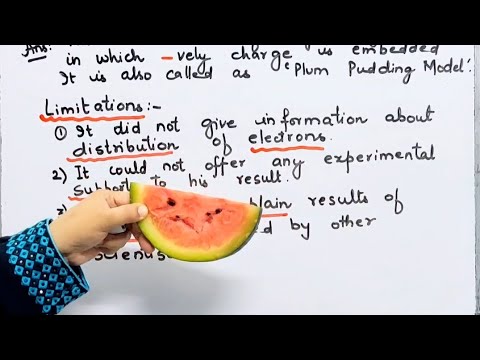 Ans:
in which -vely charge is embedded
It is also called as 'Plum Pudding Model'.
Limitations:-
① It did not give information about
distribution of electrons.
2) It could not offer any experimental
Support to his result.
3) plain results of
ed by other
scientis